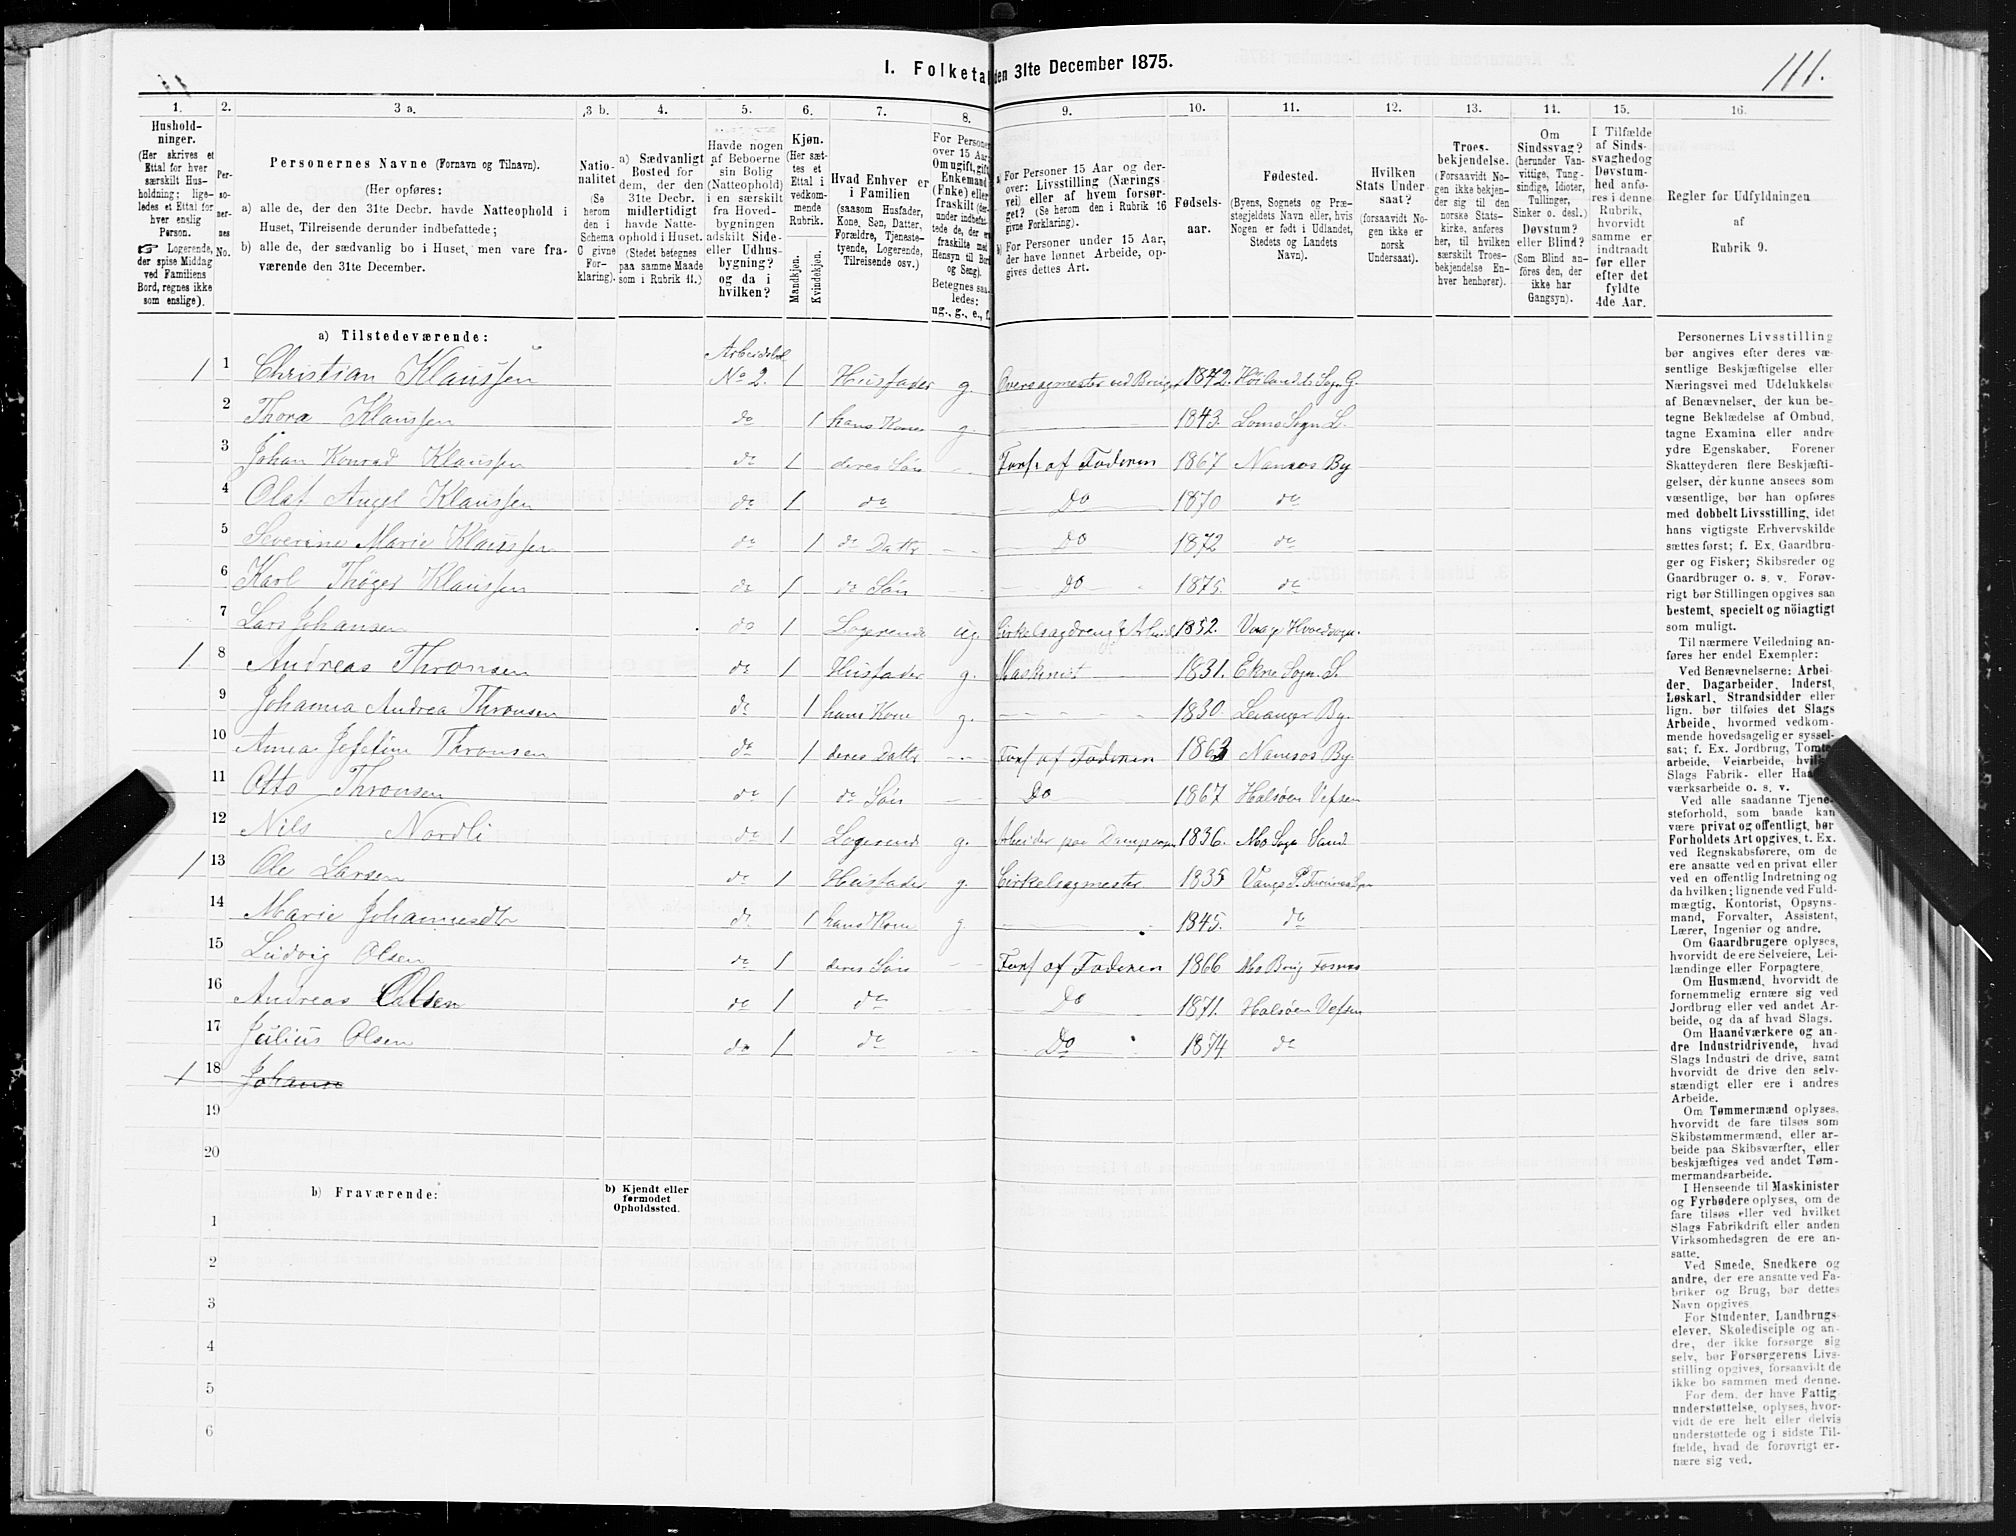 I. Folketal den 31te December 1875.
111.
1.
2.
3 a.
3 b.
4.
5.
6.
7.
8.
9.
10.
11.
12.
13.
14.
15.
16.
Hushold-
ninger.
(Her skrives et
Ettal for hver
særskilt Hus-
holdning; lige-
ledes et Ettal for
hver enslig
Person.
☞ Logerende,
der spise Middag
ved Familiens
Bord, regnes ikke
som enslige).
Per-
so-
ner-
nes
No.
Personernes Navne (Fornavn og Tilnavn).
(Her opføres:
a) alle de, der den 31te Decbr. havde Natteophold i
Huset, Tilreisende derunder indbefattede;
b) alle de, der sædvanlig bo i Huset, men vare fra-
værende den 31te December.
Natio-
nalitet
(Se
herom
den i
Schema
C givne
For-
klaring).
a) Sædvanligt
Bosted for
dem, der den
31te Decbr.
midlertidigt
havde Natte-
ophold i Huset.
(Stedet betegnes
paa samme Maade
som i Rubrik 11.)
Havde nogen
af Beboerne
sin Bolig
(Natteophold)
i en særskilt
fra Hoved-
bygningen
adskilt Side-
eller Udhus-
bygning?
og da i
hvilken?
Kjøn.
(Her sæt-
tes et
Ettal i
vedkom-
mende
Rubrik.
Mandkjøn.
Kvindekjøn.
Hvad Enhver er
i Familien
(saasom Husfader,
Kone, Søn, Datter,
Forældre, Tjeneste-
tyende, Logerende,
Tilreisende osv.)
For Personer
over 15 Aar:
Om ugift, gift,
Enkemand
(Enke) eller
fraskilt
Betegnes saa-
ledes:
ug., g., e., f.
a) For Personer 15 Aar og der-
over: Livsstilling (Nærings-
vei) eller af hvem forsør-
get? (Se herom den i Rubrik 16
givne Forklaring).
b) For Personer under 15 Aar,
der have lønnet Arbeide, op-
gives dettes Art.
Fødsels-
aar.
Fødested.
(Byens, Sognets og Præ-
stegjeldets Navn eller, hvis
Nogen er født i Udlandet,
Stedets og Landets
Navn).
Hvilken
Stats Under-
saat?
(forsaavidt No-
gen ikke er
norsk
Undersaat).
Troes-
bekjendelse.
(Forsaavidt No-
gen ikke bekjen-
der sig til den
norske Stats-
kirke, anføres
her, til hvilken
særskilt Troes-
bekjendelse En-
hver henhører).
Om
Sindssvag?
(herunder Van-
vittige, Tung-
sindige, Idioter,
Tullinger,
Sinker o. desl.)
Døvstum?
eller Blind?
(Som Blind an-
føres den, der
ikke har
Gangsyn).
I Tilfælde
af Sinds-
svaghed og
Døvstum-
hed anfø-
res i denne
Rubrik,
hvorvidt
samme er
indtraadt
før eller
efter det
fyldte
4de Aar.
Regler for Udfyldningen
af
Rubrik 9.
a) Tilstedeværende:
Arbeidsbol
1 1 Christian Klaussen No 2. 1 Husfader g. Oversagmester ved Bruget 1842. Høilandets Sogn G.
2 Thora Klaussen do 1 hans Kone g. 1843. Loms Sogn L.
3 Johan Konrad Klaussen do 1 deres Søn Fors. af Faderen 1867 Namsos By
4 Olaf Angel Klaussen do 1 do Do 1870 do
5 Severine Marie Klaussen do 1 do Datter Do 1872 do
6 Karl Thøger Klaussen do 1 do Søn Do 1875. do
7 Lars Johansen do 1 Logerende ug. 1852. Vaage Hovedsogn.
1 8 Andreas Thronsen do 1 Husfader g. Maskinist 1831. Ekne Sogn S.
9 Johanna Andrea Thronsen do 1 hans Kone g. 1830. Levanger By.
10 Anna Josefine Thronsen do 1 deres Datter Fors af Faderen 1863 Namsos By.
11 Otto Thronsen do 1 do Søn Do 1867 Halsøen Vefsen
12 Nils Nordli do 1 Logerend g. Arbeider paa Dampsagen 1836. Mo Sogn Sand.
1 13 Ole Larsen do 1 Husfader g. Cirkelsagmester 1835 Vangs P.
14 Marie Johannesdtr do 1 hans Kone g. 1845. do
15 Ludvig Olsen do 1 deres Søn Fors af Faderen 1866 Mo Brug Fosnæs
16 Andreas Olsen do 1 do Do 1871. Halsøen Vefsen
17 Julius Olsen do 1 do Do 1874 do
1 18 Johann
19
20
b) Fraværende:
b) Kjendt eller
formodet
Opholdssted.
1
2
3
4
5
6
Personernes Livsstilling
bør angives efter deres væ-
sentlige Beskjæftigelse eller
Næringsvei med Udelukkelse
af Benævnelser, der kun be-
tegne Beklædelse af Ombud,
tagne Examina eller andre
ydre Egenskaber. Forener
Skatteyderen flere Beskjæfti-
gelser, der kunne ansees som
væsentlige, bør han opføres
med dobbelt Livsstilling, idet
hans vigtigste Erhvervskilde
sættes først; f. Ex. Gaardbru-
ger og Fisker; Skibsreder og
Gaardbruger o. s. v. Forøv-
rigt bør Stillingen opgives saa
bestemt, specielt og nöiagtigt
som muligt.
Til nærmere Veiledning an-
føres her endel Exempler:
Ved Benævnelserne: Arbei-
der, Dagarbeider, Inderst,
Løskarl, Strandsidder eller
lign. bør tilføies det Slags
Arbeide, hvormed vedkom-
mende hovedsagelig er syssel-
sat; f. Ex. Jordbrug, Tomte-
arbeide, Veiarbeide, hvilket
Slags Fabrik- eller Haand-
værksarbeide o. s. v.
Ved alle saadanne Tjene-
steforhold, som baade kan
være privat og offentligt, bør
Forholdets Art opgives, t. Ex.
ved Regnskabsførere, om de
ere ansatte ved en privat eller
ved en offentlig Indretning og
da hvilken; lignende ved Fuld-
mægtig, Kontorist, Opsyns-
mand, Forvalter, Assistent,
Lærer, Ingeniør og andre.
Om Gaardbrugere oplyses,
hvorvidt de ere Selveiere, Lei-
lændinge eller Forpagtere.
Om Husmænd, hvorvidt de
fornemmelig ernære sig ved
Jordbrug eller ved andet Ar-
beide, og da af hvad Slags.
Om Haandværkere og an-
dre Industridrivende, hvad
Slags Industri de drive, samt
hvorvidt de drive den selv-
stændigt eller ere i andres
Arbeide.
Om Tømmermænd oplyses,
hvorvidt de fare tilsøs som
Skibstømmermænd, eller ar-
beide paa Skibsværfter, eller
beskjæftiges ved andet Tøm-
mermandsarbeide.
I Henseende til Maskinister
og Fyrbødere oplyses, om de
fare tilsøs eller ved hvilket
Slags Fabrikdrift eller anden
Virksomhedsgren de ere an-
satte.
Ved Smede, Snedkere og
andre, der ere ansatte ved Fa-
briker og Brug, bør dettes
Navn opgives
For Studenter, Landbrugs-
elever, Skoledisciple og an-
dre, der ikke forsørge sig
selv, bør Forsørgerens Livs-
stilling opgives, forsaavidt de
ikke bo sammen med denne.
For dem, der have Fattig-
understøttelse, oplyses, hvor-
vidt de ere helt eller delvis
understøttede og i sidste Til-
fælde, hvad de forøvrigt er-
nære sig ved.